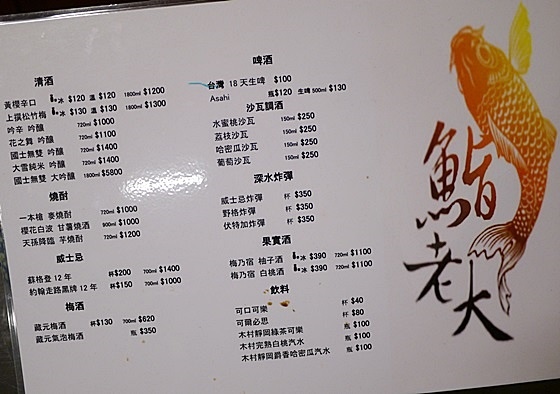 清酒
黃櫻辛口 冰 $120 溫 $120 1800ml $1200
上撰松竹梅 冰 $130 溫 $130 1800ml $1300
吟辛 吟釀 720ml $1000
花之舞 吟釀 720ml $1100
國士無雙 吟釀 720ml $1400
大雪純米 吟釀 720ml $1400
國士無雙 大吟釀 1800ml $5800
燒酎
一本槍 麥燒酎 720ml $1000
櫻花白波 甘薯燒酒 900ml $1000
天孫降臨 芋燒酎 720ml $1200
威士忌
蘇格登 12 年 杯 $200 700ml $1400
約翰走路黑牌 12 年 杯 $150 700ml $1000
梅酒
藏元梅酒 杯 $130 700ml $620
藏元氣泡梅酒 瓶 $350
啤酒
台灣 18 天生啤 $100
Asahi 瓶 $120 生啤 500ml $130
沙瓦調酒
水蜜桃沙瓦 150ml $250
荔枝沙瓦 150ml $250
哈密瓜沙瓦 150ml $250
葡萄沙瓦 150ml $250
深水炸彈
威士忌炸彈 杯 $350
野格炸彈 杯 $350
伏特加炸彈 杯 $350
果實酒
梅乃宿 柚子酒 冰 $390 720ml $1100
梅乃宿 白桃酒 冰 $390 720ml $1100
飲料
可口可樂 杯 $40
可爾必思 杯 $80
木村靜岡綠茶可樂 瓶 $100
木村完熟白桃汽水 瓶 $100
木村靜岡爵香哈密瓜汽水 瓶 $100
鮨老大